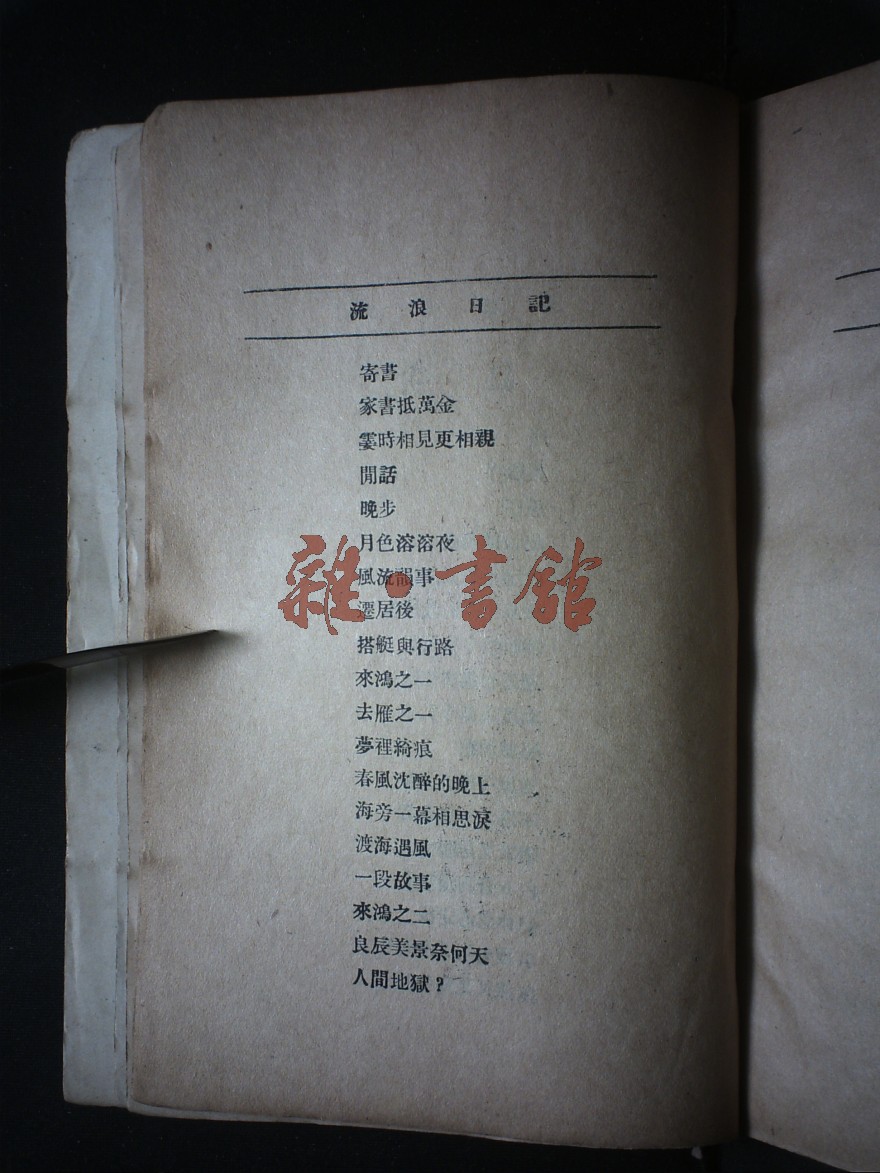 流浪日記
寄書
家書抵萬金
霎時相見更相親
閒話
晚步
月色溶溶夜
風流韻事
雜·書館
遷居後
搭艇與行路
來鴻之一
去雁之一
夢裡綺痕
春風沈醉的晚上
海旁一幕相思淚
渡海遇風
一段故事
來鴻之二
良辰美景奈何天
人間地獄？